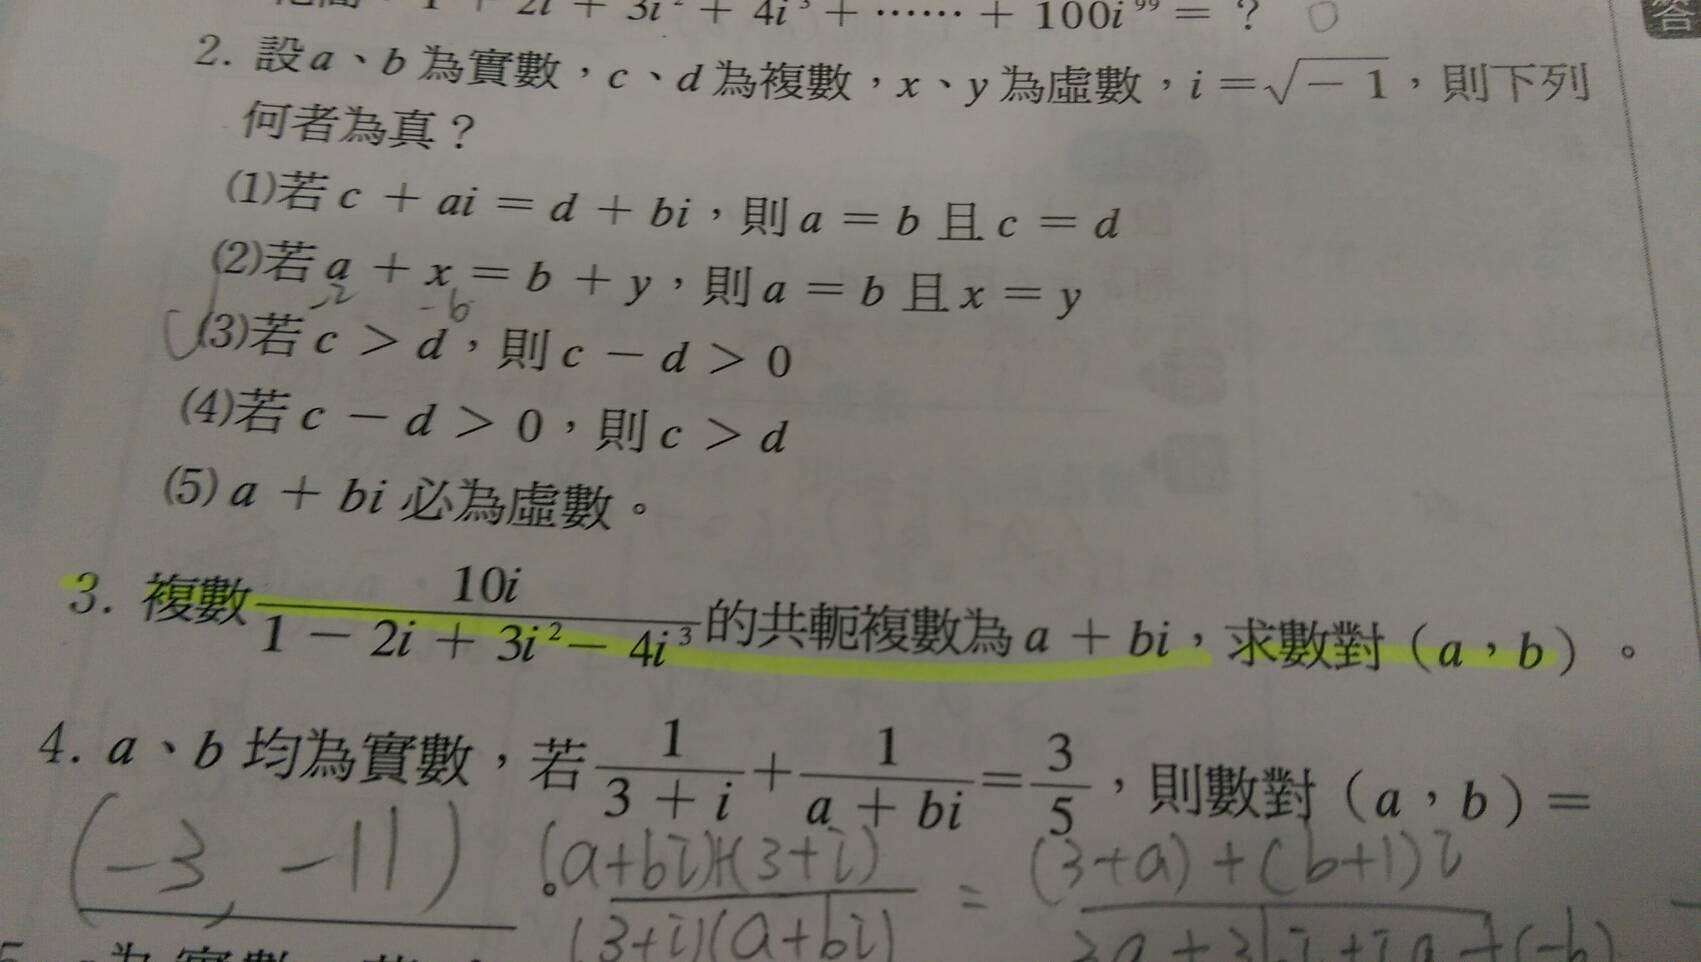 1 + 2i + 3i² + 4i³ + …… + 100i⁹⁹ = ?
答
2. 設a、b為實數,c、d為複數,x、y為虛數,i=√−1,則下列
何者為真?
(1)若c + ai = d + bi,則a = b且c = d
(2)若a + x = b + y,則a = b且x = y
-2 -6
(3)若c > d,則c − d > 0
(4)若c − d > 0,則c > d
(5)a + bi必為虛數。
3. 複數 10i / (1 − 2i + 3i² − 4i³) 的共軛複數為a + bi,求數對(a,b)。
4. a、b均為實數,若 1/(3 + i) + 1/(a + bi) = 3/5,則數對(a,b)=
(-3, -11) 。 (a+bi)+(3+i) / (3+i)(a+bi) = (3+a)+(b+1)i
為實數